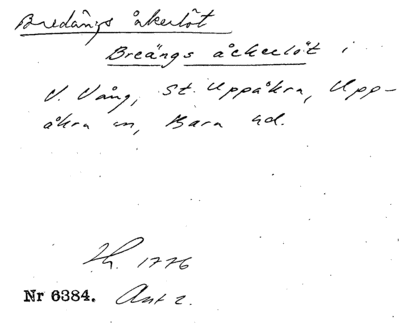 Bredängs åkerlöt
Breängs åckerlöt i
V. Vång, St. Uppåkra, Upp-
åkra sn, Bara hd.
Lh. 1776
Nr 6384. Akt 2.